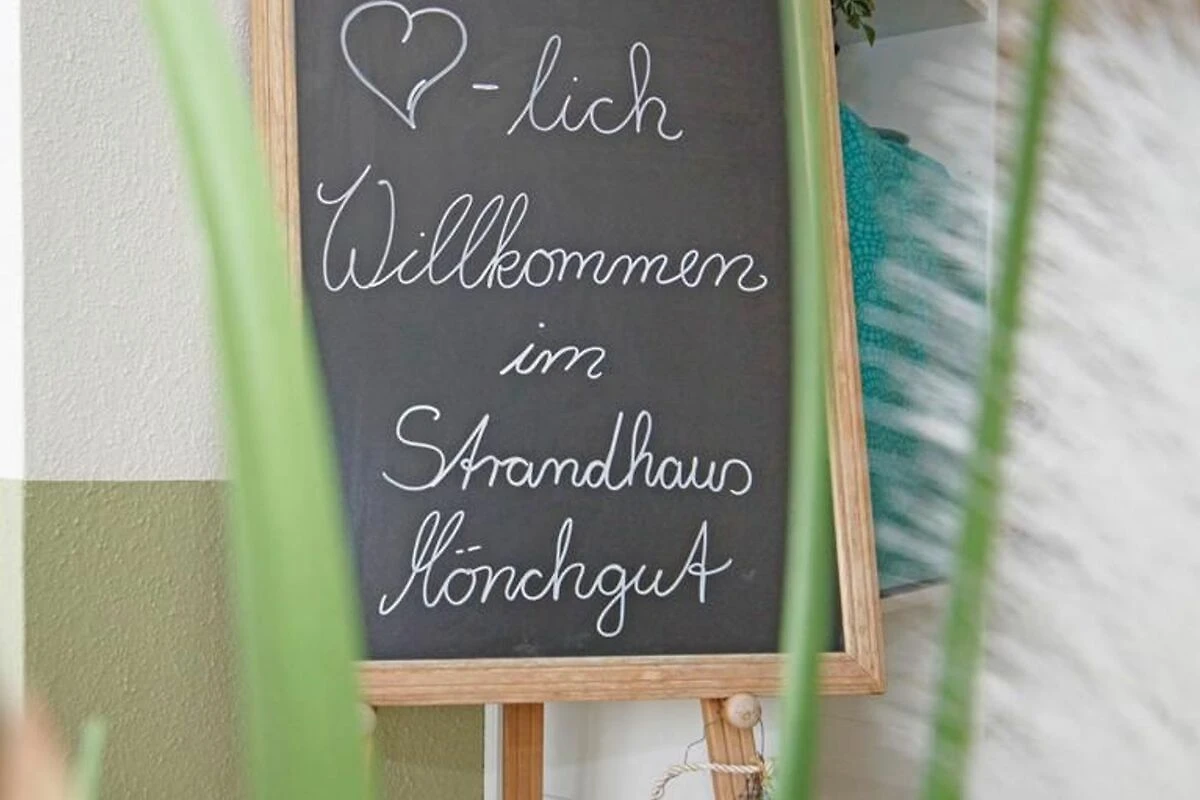 ♡-lich
Willkommen
im
Strandhaus
Mönchgut